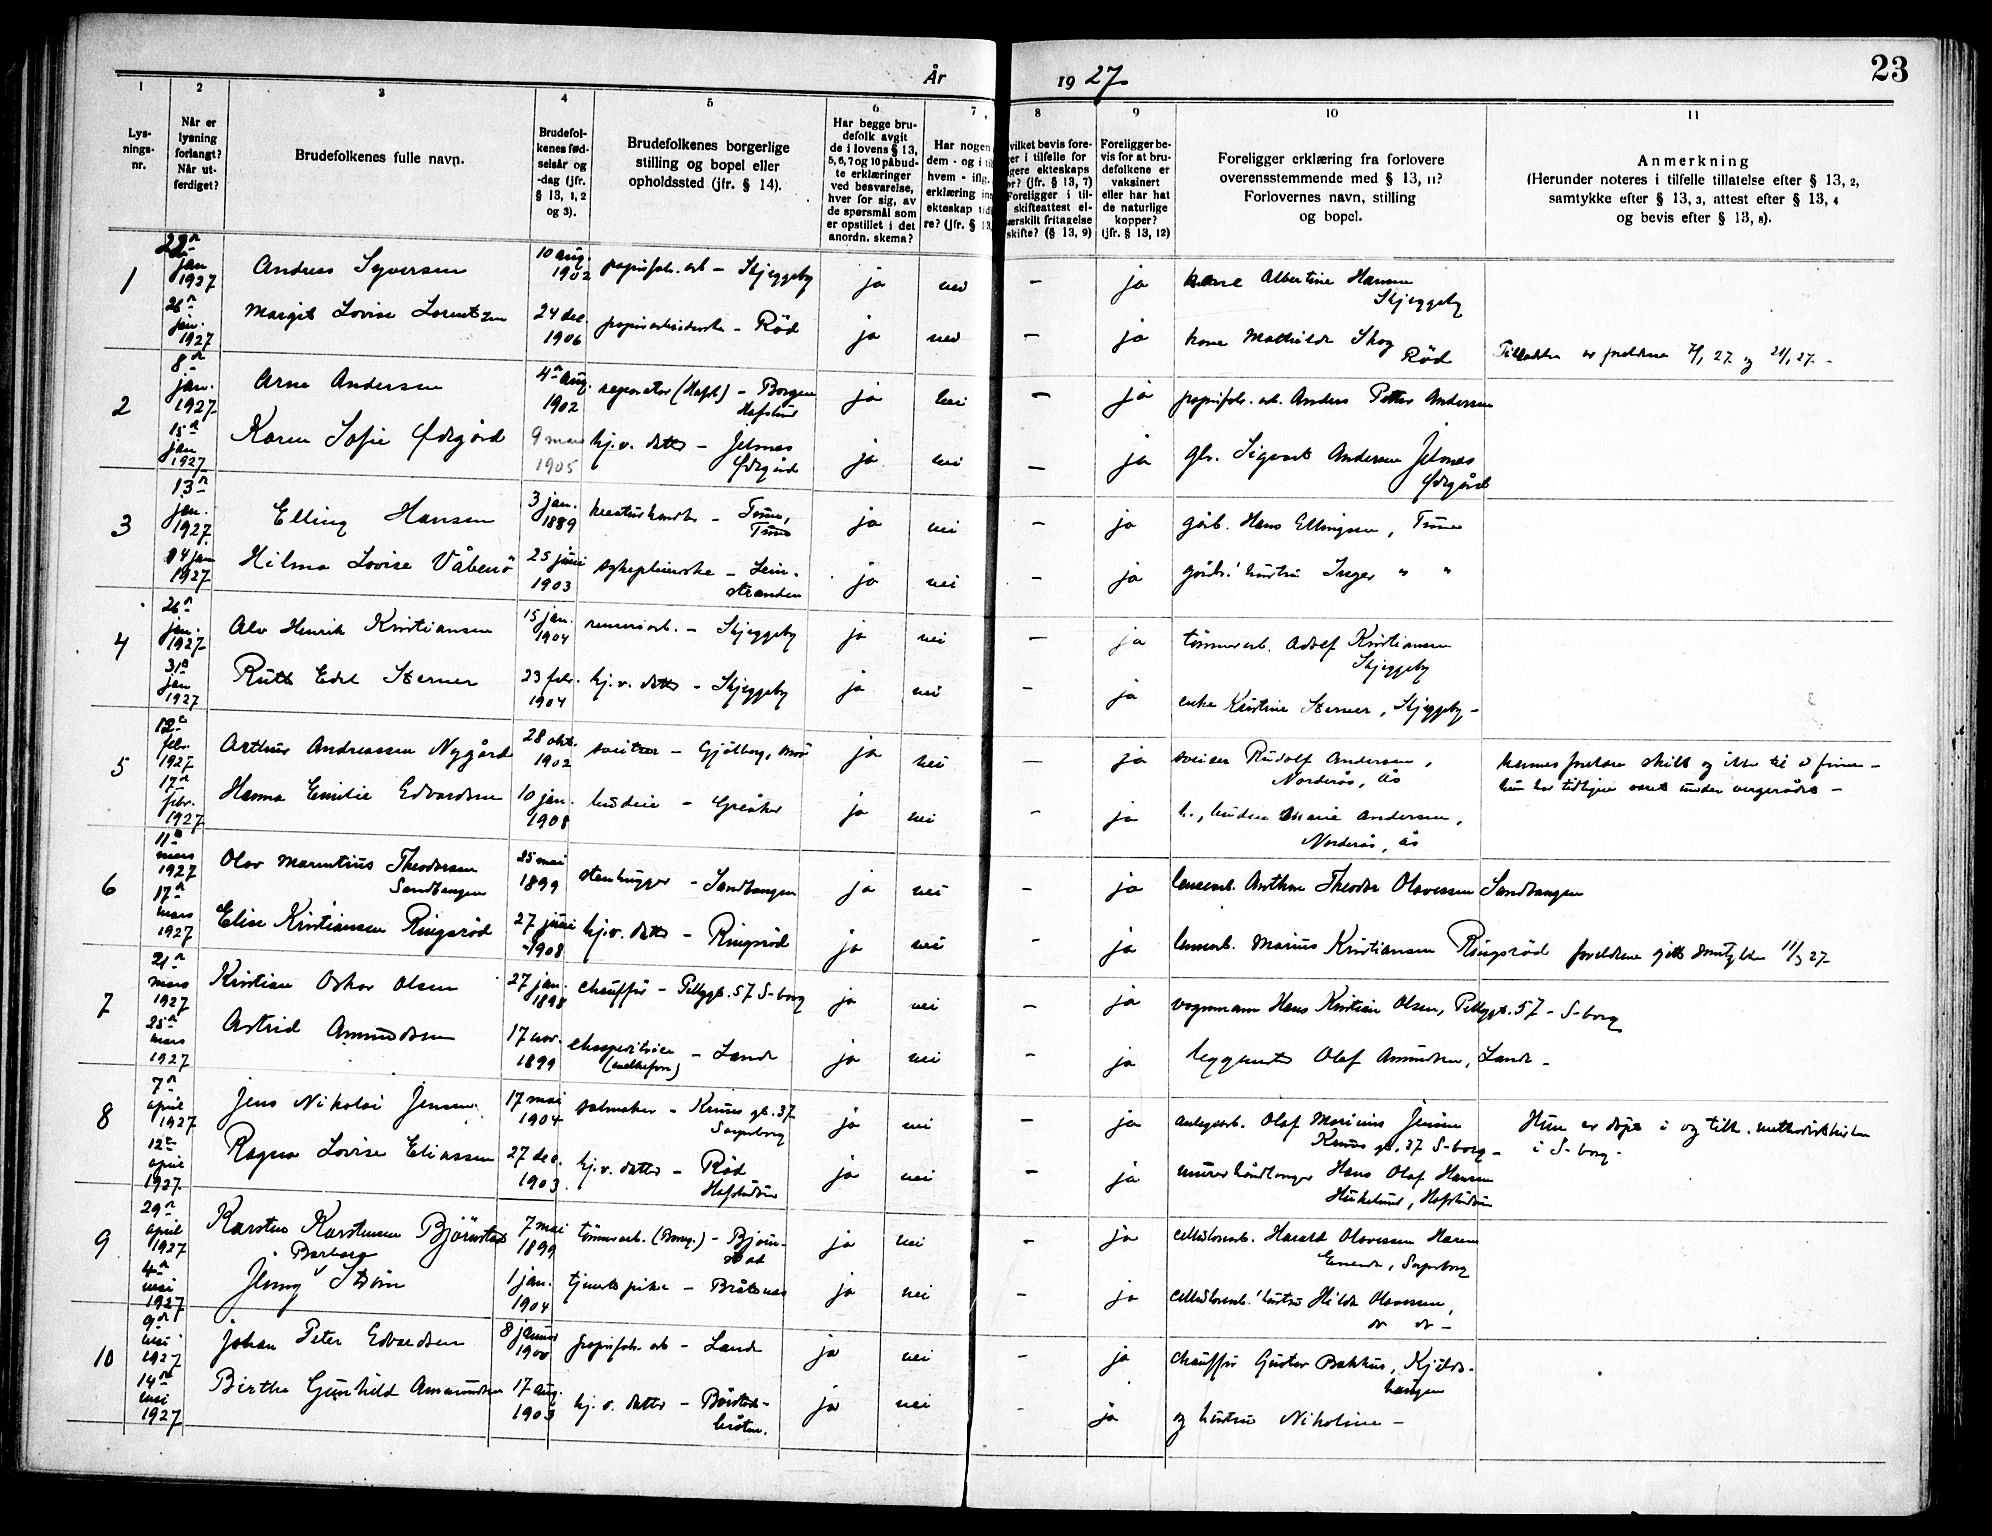 År 1927.
23
1
2
3
4
5
6
7
8
9
10
11
Lys-
nings-
nr.
Når er
lysning
forlangt?
Når ut-
ferdiget?
Brudefolkenes fulle navn.
Brudefol-
kenes fød-
selsår og
-dag (jfr.
§ 13, 1, 2
og 3).
Brudefolkenes borgerlige
stilling og bopel eller
opholdssted (jfr. § 14).
Har begge bru-
defolk avgit
de i lovens § 13,
5, 6, 7 og 10 påbud-
te erklæringer
ved besvarelse,
hver for sig, av
de spørsmål som
er opstillet i det
anordn. skema?
Har nogen
dem - og i ti
hvem - iflg.
erklæring in
ekteskap tid
re? (jfr. § 13,
vilket bevis fore-
er i tilfelle for
gere ekteskaps
or? (jfr. § 13, 7)
Foreligger i til-
skifteattest el-
ærskilt fritagelse
skifte? (§ 13, 9)
Foreligger be-
vis for at bru-
defolkene er
vaksinert
eller har hat
de naturlige
kopper?
(jfr. § 13, 12)
Foreligger erklæring fra forlovere
overensstemmende med § 13, 11?
Forlovernes navn, stilling
og bopel.
Anmerkning
(Herunder noteres i tilfelle tillatelse efter § 13, 2,
samtykke efter § 13, 3, attest efter § 13, 4
og bevis efter § 13, 8).
1
jan
1927
Andreas Syversen
10 aug.
1902
papirfabr. arb - Skjeggeby
ja
nei
-
ja
kone Albertine Hansen
Skjeggeby
26
jan.
1927
Margit Lovise Lorentzen
24 dec.
1906
papirarbeiderske - Rød
ja
nei
-
ja
kone Mathilde Skog
Rød
2
8
jan.
1927
Arne Andersen
4 aug.
1902
reparatør (Hafsl) - Borgen
Hafslund
ja
nei
-
ja
papirfabr. arb. Anders Petter Andersen
15
jan
1927
Karen Sofie Ødegård
9 mars
1905
hj.v. datter - Jelsnes
Ødegård
ja
nei
-
ja
Sigvart Andersen Jelsnes
Ødegård
3
13
jan.
1927
Elling Hansen
3 jan.
1889
kreaturhandler - Tune,
Tune
ja
nei
-
ja
gårdb. Hans Ellingsen, Tune
14 jan
1927
Hilma Lovise Våbenø
25 juni
1903
sykepleierske - Lein-
stranden
ja
nei
-
ja
gårdb.' hustru Inger " "
4
26
jan.
1927
Alv Henrik Kristiansen
15 jan.
1904
renseriarb. - Skjeggeby
ja
nei
-
ja
tømmerarb. Adolf Kristiansen
Skjeggeby
31
jan
1927
Ruth Edel Sterner
23 febr.
1904
hj.v. datter - Skjeggeby
ja
nei
-
ja
enke Kristine Sterner, Skjeggeby -
5
12
febr.
1927
Arthur Andreassen Nygård
28 okt.
1902
sveitser - Gjølborg,
ja
nei
-
ja
sveiser Rudolf Andersen,
Norderås, Ås
17
febr.
1927
Hanna Emilie Edvardsen
10 jan.
1908
budeie - Greåker
ja
nei
-
ja
Marie Andersen,
Norderås, Ås
hennes foreldre skilt og ikke til å finne -
hun har tidligere været under vergerådet -
6
11
mars
1927
Olav Marentius Theodorsen
Sandtangen
25 mai
1899
stenhugger - Sandtangen
ja
nei
-
ja
Anthon Theodor Olavessen Sandtangen
17
mars
1927
Elise Kristiansen Ringsrød
27 juni
1908
hj.v. datter - Ringsrød
ja
nei
-
ja
Marius Kristiansen Ringsrød
foreldrene gitt samtykke 11/3 27-
7
21
mars
1927
Kristian Oskar Olsen
27 jan.
1898
chauffør - Pellygt. 57 S-borg
ja
nei
-
ja
vognmann Hans Kristian Olsen, Pellygt. 57 - S-borg
25
mars
1927
Astrid Amundsen
17 nov.
1899
ekspeditrice
- Lande
ja
nei
-
ja
byggmester Olaf Amundsen, Lande -
8
7
april
1927
Jens Nikolai Jensen
17 mai
1904
salmaker - Kruses gt. 37
Sarpsborg
ja
nei
-
ja
anlegsarb. Olaf Marinius Jensen
Kruses gt. 37 S-borg -
Hun er døpt i og tilh. methodistkirken
i S-borg -
12
april
1927
Ragna Lovise Eliassen
27 dec.
1903.
hj.v. datter - Rød
Hafslundsøi
ja
nei
-
ja
murerhåndlanger Hans Olaf Hansen
Hukelund, Hafslundsøi
9
29
april
1927
Karsten Karstensen Bjørnstad
7 mai
1899
tømmerarb. (Borreg.) - Bjørn-
stad
ja
nei
-
ja
cellulosearb. Harald Olavessen Haren
Enende, Sarpsborg
4
mai
1927
Barbara
Jenny Strøm
1 jan.
1904
tjenestepike - Bråtenes
ja
nei
-
ja
cellulosearb.' hustru Hilda Olavessen,
10
9
mai
1927
Johan Peter Edvardsen
8 januar
1900
papirfabr. arb - Lande
ja
nei
-
ja
chauffør Gustav Bakkus, Kjilds-
haugen
14
mai
1927
Birthe Gunhild Amundsen
17 aug.
1903
hj. v. datter - Borstad-
bråten.
ja
nei
-
ja
og hustru Nikoline -